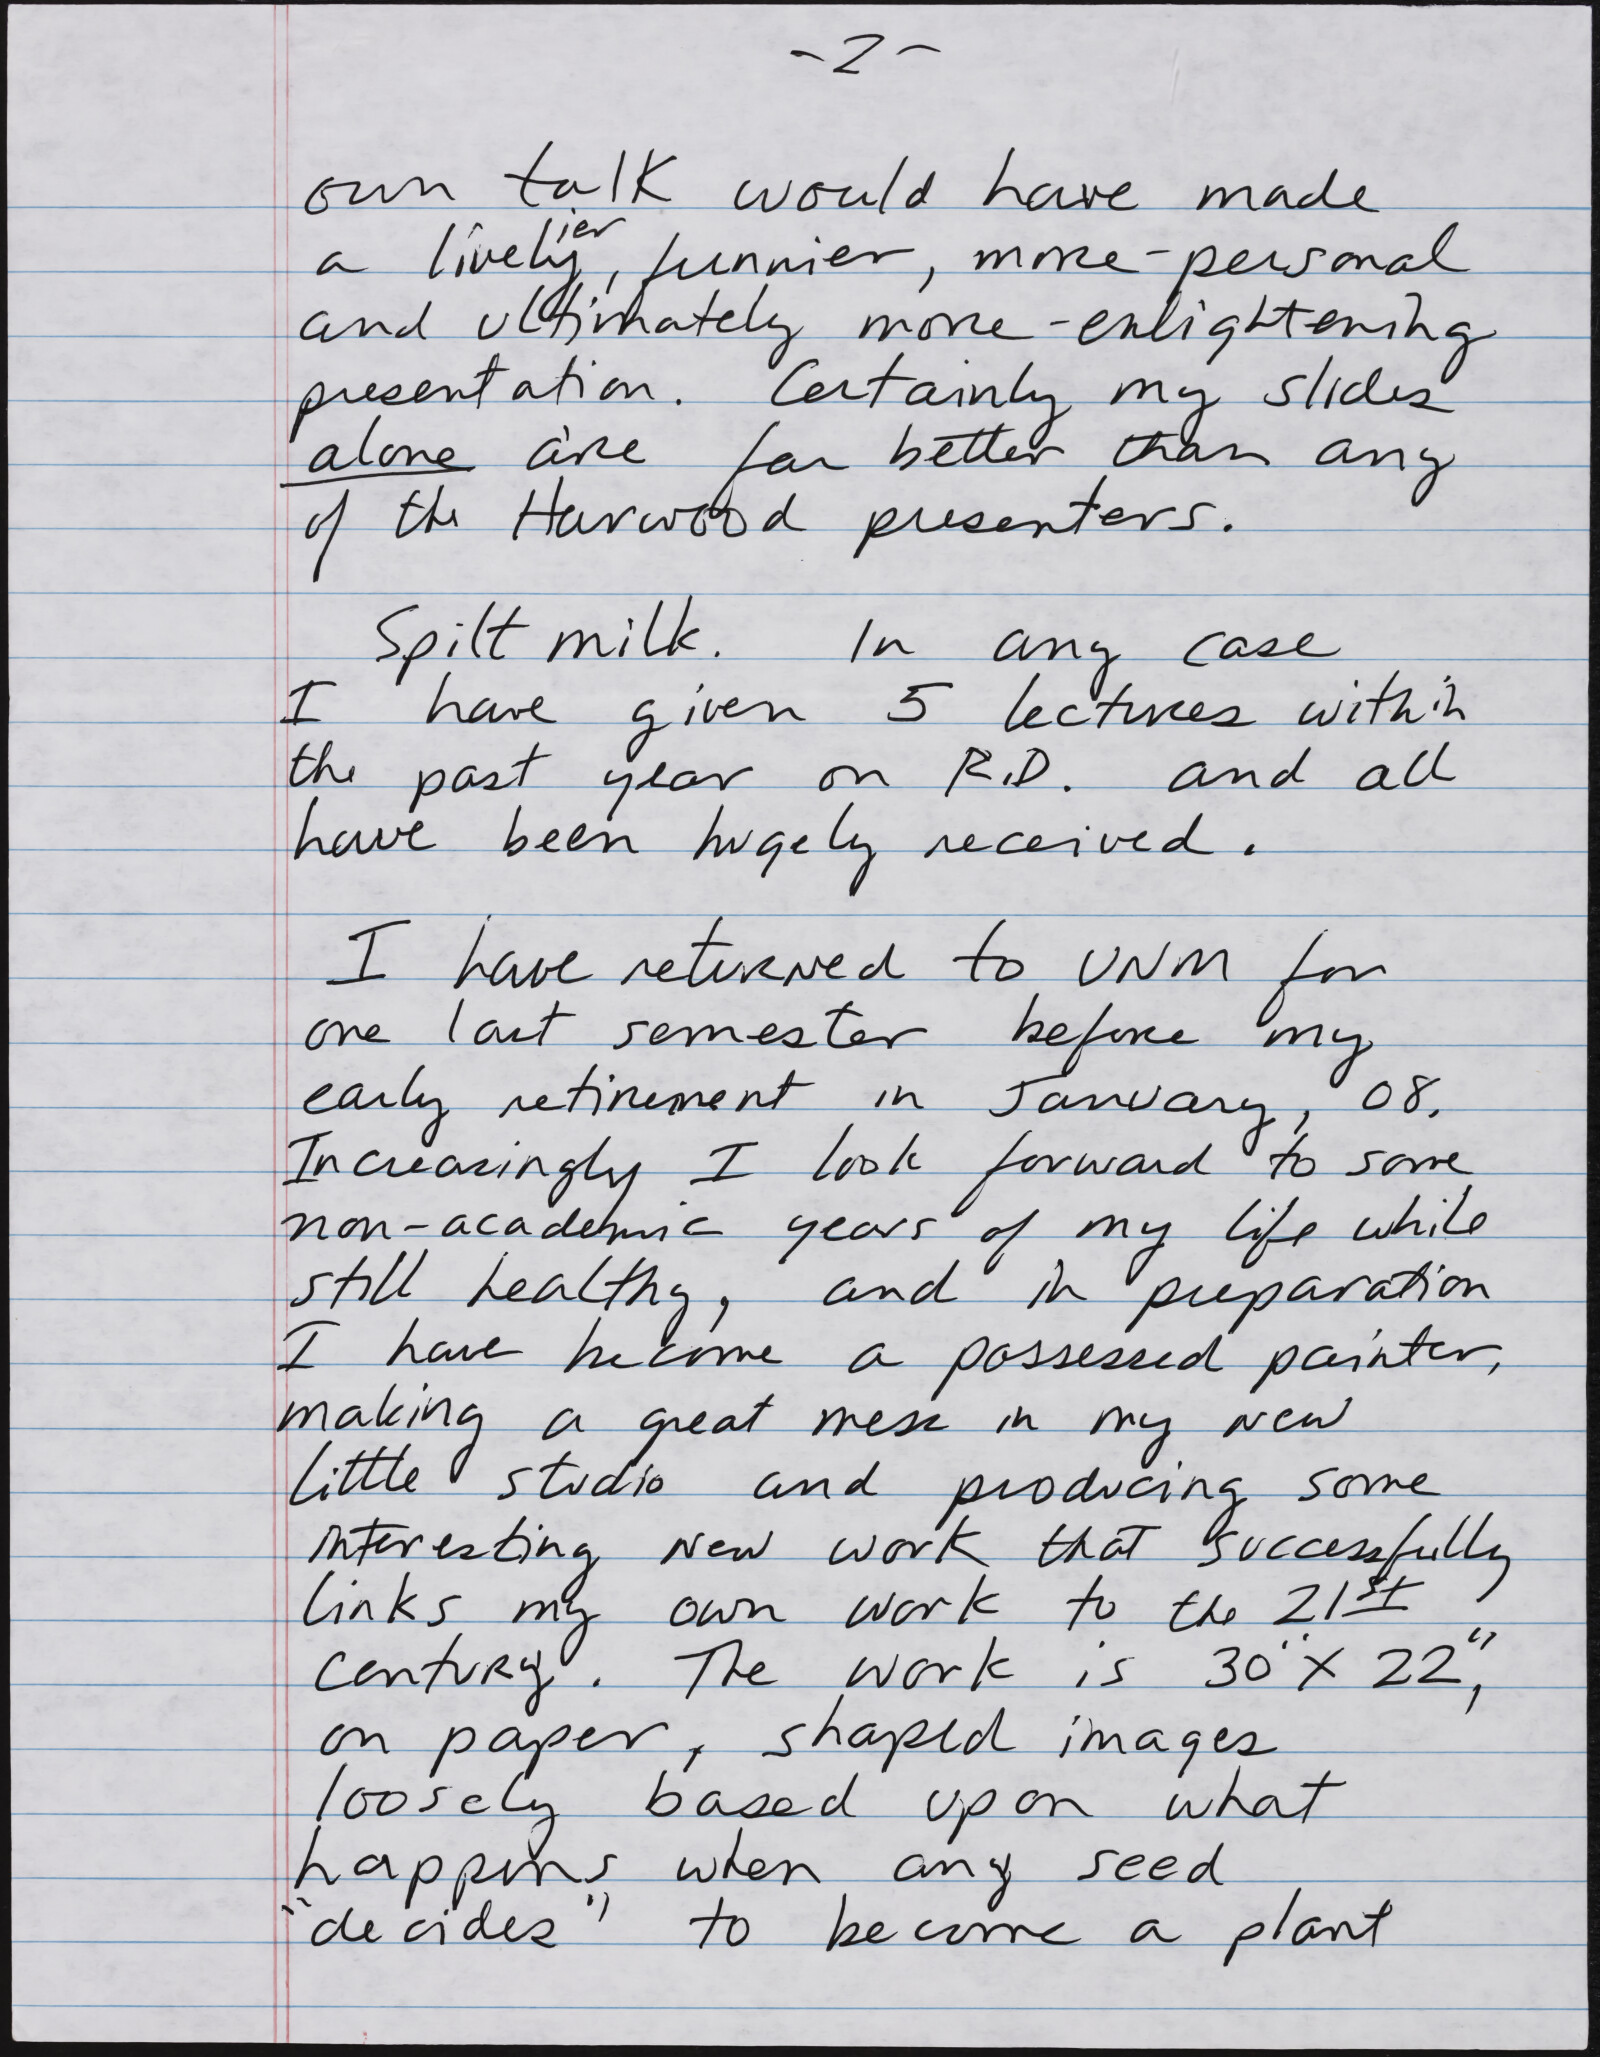 -2-
own talk would have made
a livelier, funnier, more-personal
and ultimately more-enlightening
presentation. Certainly my slides
alone are far better than any
of the Harwood presenters.
Spilt milk. In any case
I have given 5 lectures within
the past year on R.D. and all
have been hugely received.
I have returned to UNM for
one last semester before my
early retirement in January, 08.
Increasingly I look forward to some
non-academic years of my life while
still healthy, and in preparation
I have become a possessed painter,
making a great mess in my new
little studio and producing some
interesting new work that successfully
links my own work to the 21st
century. The work is 30" X 22",
on paper, shaped images
loosely based upon what
happens when any seed
"decides" to become a plant